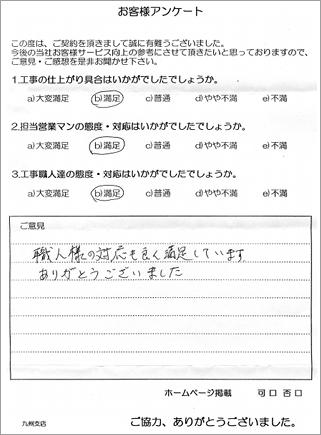 お客様アンケート
この度は、ご契約を頂きまして誠に有難うございました。
今後の当社お客様サービス向上の参考にさせて頂きたいと思っておりますので、
ご意見・ご感想を是非お聞かせ下さい。
1.工事の仕上がり具合はいかがでしたでしょうか。
a)大変満足 b)満足 c)普通 d)やや不満 e)不満
2.担当営業マンの態度・対応はいかがでしたでしょうか。
a)大変満足 b)満足 c)普通 d)やや不満 e)不満
3.工事職人達の態度・対応はいかがでしたでしょうか。
a)大変満足 b)満足 c)普通 d)やや不満 e)不満
ご意見
職人様の対応も良く満足しています
ありがとうございました
ホームページ掲載 可口 否口
九州支店
ご協力、ありがとうございました。